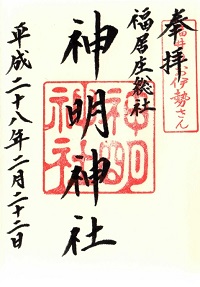 奉拝
福井のお伊勢さん
福居庄総社
神明神社
神明神社
平成二十八年二月二十二日